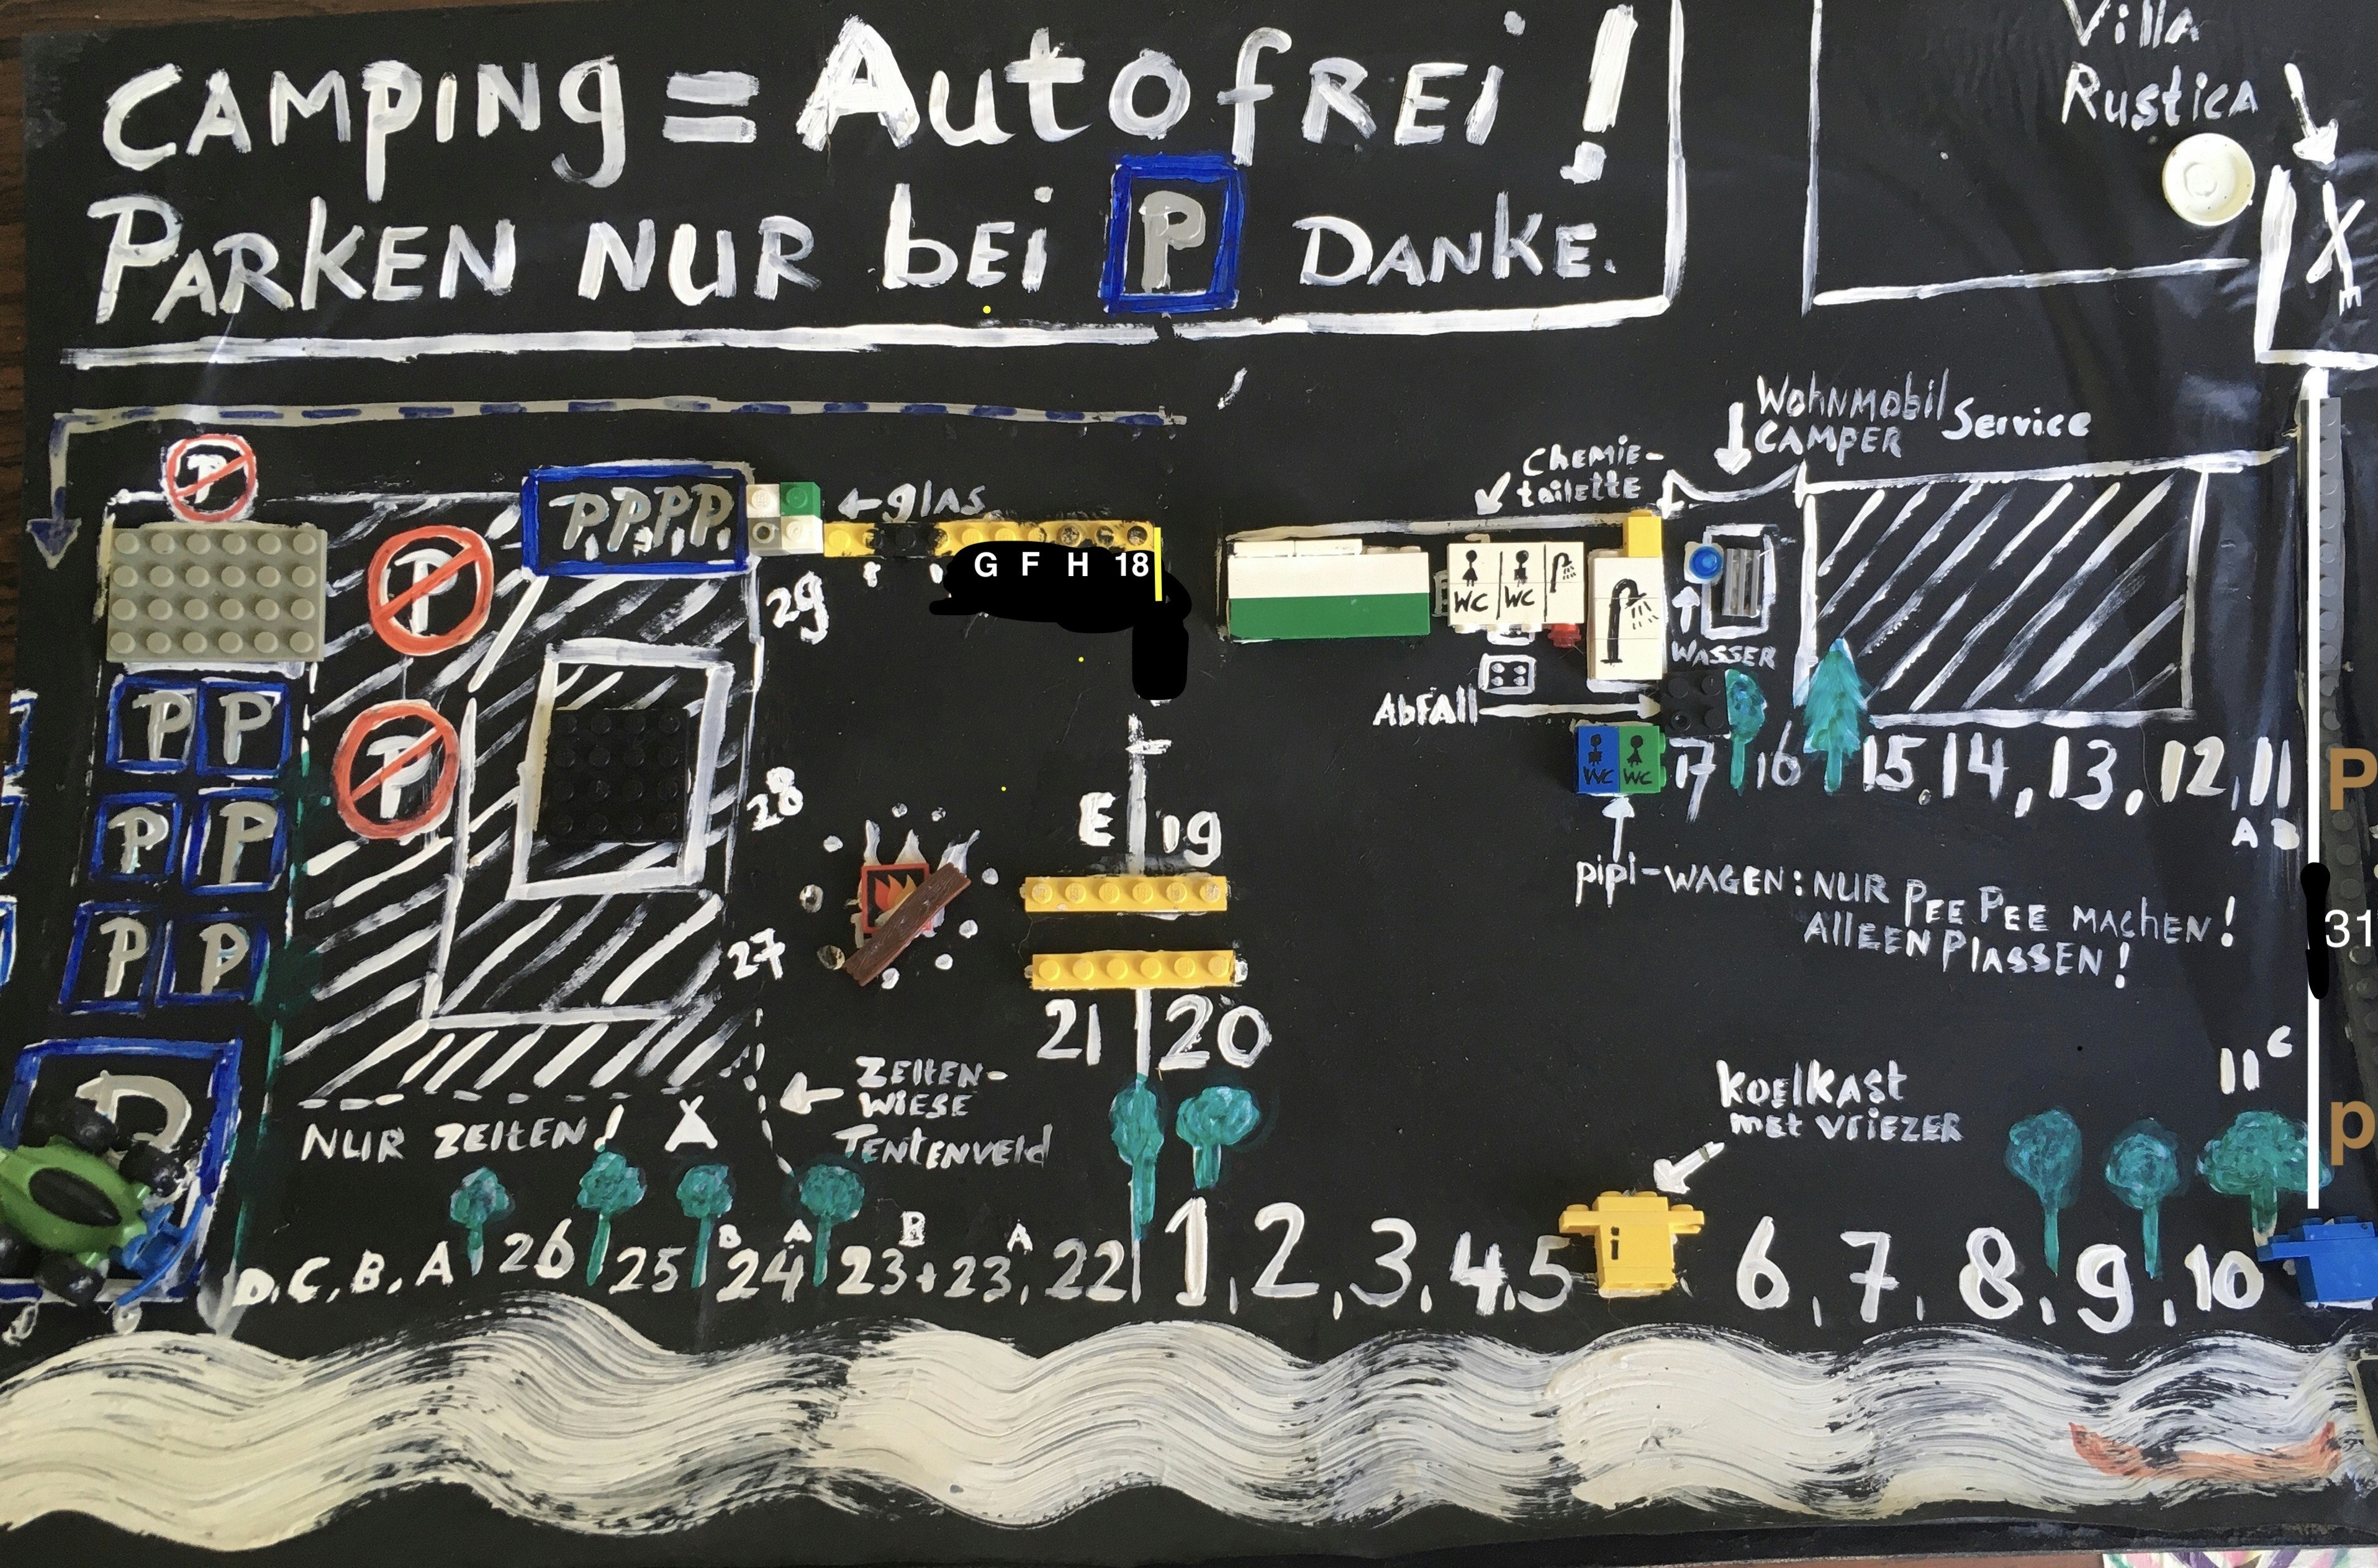 CAMPING = AutofREi !
PARKEN NUR bEi P DANKE.
Villa
Rustica
X
E
WOHNMObil Service
CAMPER
Chemie-
toilette
P
P,P,P,P,
← glAS
G F H 18
29
P
WC WC
WASSER
AbfAll
P P
P
WC WC
17 16 15. 14, 13, 12, 11
A B
P
28
E 19
P P
pipi-WAGEN: NUR PEE PEE MACHEN!
AllEEN PlASSEN!
31
27
P P
21 20
11 C
P
ZElTEN-
WiESE
TENTENVEld
NUR ZElTEN! X
KOElKASt
met vriEZER
p
D, C, B, A 26 25 B 24 A 23 B + 23, A 22 1, 2, 3, 4, 5 i 6, 7, 8, 9, 10